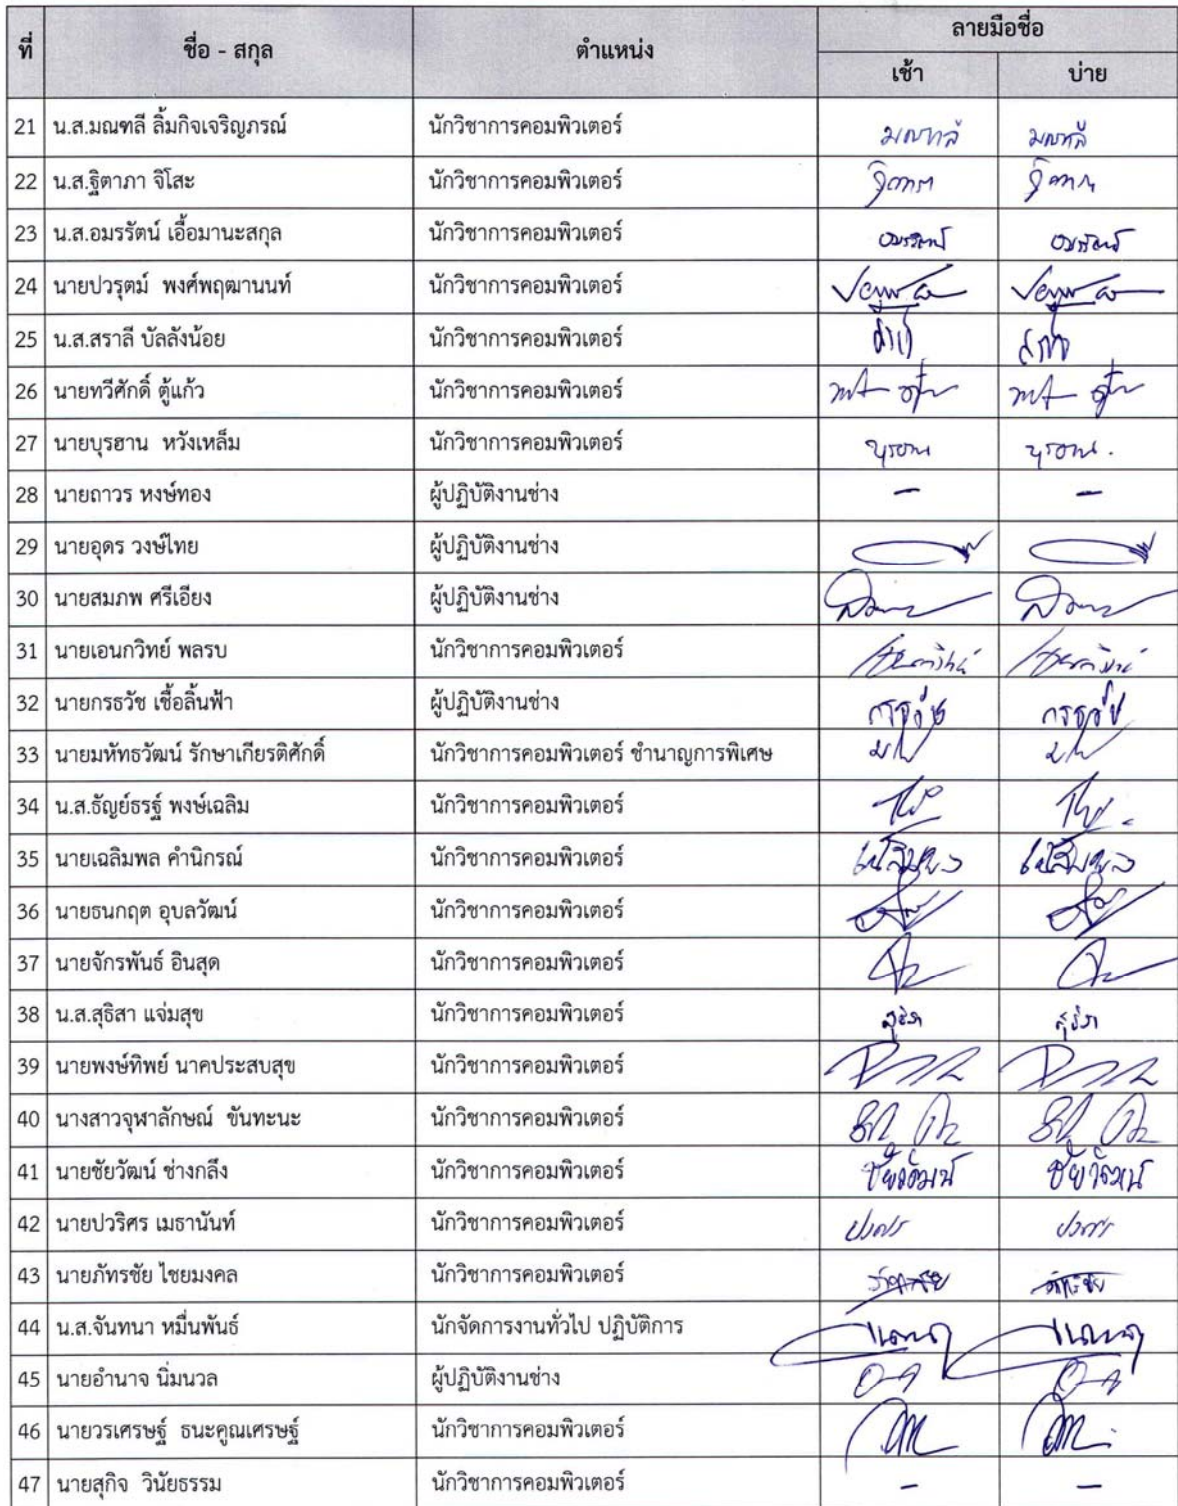 ที่ ชื่อ - สกุล ตำแหน่ง ลายมือชื่อ
เช้า บ่าย
21 น.ส.มณฑลี ลิ้มกิจเจริญภรณ์ นักวิชาการคอมพิวเตอร์ มณฑลี มณฑลี
22 น.ส.ฐิตาภา จิโสะ นักวิชาการคอมพิวเตอร์
23 น.ส.อมรรัตน์ เอื้อมานะสกุล นักวิชาการคอมพิวเตอร์ อมรรัตน์ อมรรัตน์
24 นายปวรุตม์ พงศ์พฤฒานนท์ นักวิชาการคอมพิวเตอร์
25 น.ส.สราลี บัลลังน้อย นักวิชาการคอมพิวเตอร์
26 นายทวีศักดิ์ ตู้แก้ว นักวิชาการคอมพิวเตอร์
27 นายบุรฮาน หวังเหล็ม นักวิชาการคอมพิวเตอร์ บุรฮาน บุรฮาน.
28 นายถาวร หงษ์ทอง ผู้ปฏิบัติงานช่าง - -
29 นายอุดร วงษ์ไทย ผู้ปฏิบัติงานช่าง
30 นายสมภพ ศรีเอียง ผู้ปฏิบัติงานช่าง
31 นายเอนกวิทย์ พลรบ นักวิชาการคอมพิวเตอร์
32 นายกรธวัช เชื้อลิ้นฟ้า ผู้ปฏิบัติงานช่าง กรธวัช กรธวัช
33 นายมหัทธวัฒน์ รักษาเกียรติศักดิ์ นักวิชาการคอมพิวเตอร์ ชำนาญการพิเศษ
34 น.ส.ธัญย์ธรฐ์ พงษ์เฉลิม นักวิชาการคอมพิวเตอร์
35 นายเฉลิมพล คำนิกรณ์ นักวิชาการคอมพิวเตอร์ เฉลิมพล เฉลิมพล
36 นายธนกฤต อุบลวัฒน์ นักวิชาการคอมพิวเตอร์
37 นายจักรพันธ์ อินสุด นักวิชาการคอมพิวเตอร์
38 น.ส.สุธิสา แจ่มสุข นักวิชาการคอมพิวเตอร์ สุธิสา สุธิสา
39 นายพงษ์ทิพย์ นาคประสบสุข นักวิชาการคอมพิวเตอร์
40 นางสาวจุฬาลักษณ์ ขันทะนะ นักวิชาการคอมพิวเตอร์
41 นายชัยวัฒน์ ช่างกลึง นักวิชาการคอมพิวเตอร์ ชัยวัฒน์ ชัยวัฒน์
42 นายปวริศร เมธานันท์ นักวิชาการคอมพิวเตอร์
43 นายภัทรชัย ไชยมงคล นักวิชาการคอมพิวเตอร์
44 น.ส.จันทนา หมื่นพันธ์ นักจัดการงานทั่วไป ปฏิบัติการ
45 นายอำนาจ นิ่มนวล ผู้ปฏิบัติงานช่าง
46 นายวรเศรษฐ์ ธนะคูณเศรษฐ์ นักวิชาการคอมพิวเตอร์
47 นายสุกิจ วินัยธรรม นักวิชาการคอมพิวเตอร์ - -